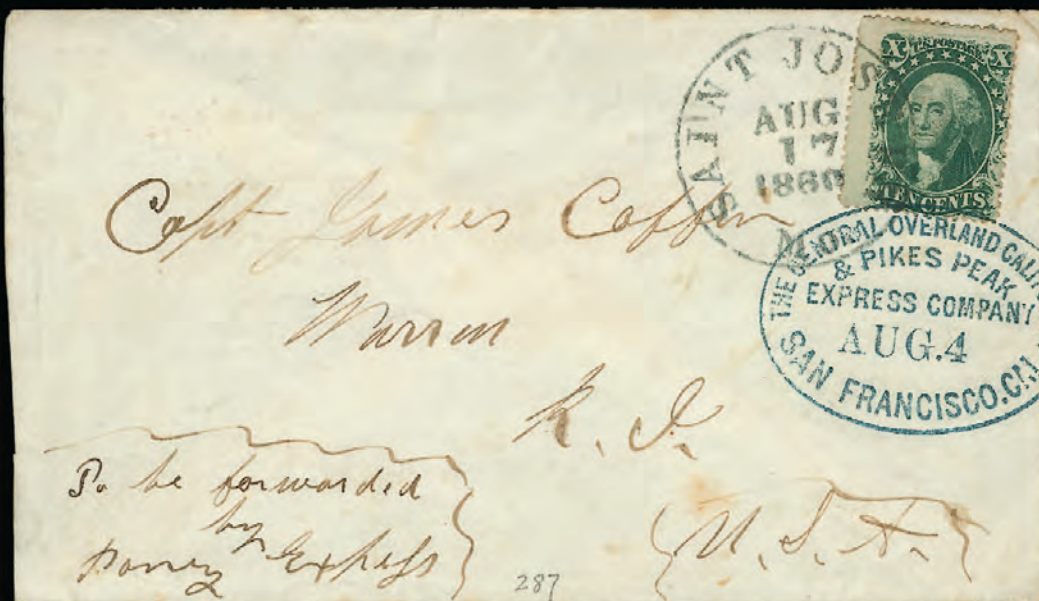 SAINT JOS
AUG
17
1860
MO
X U.S. POSTAGE X
TEN CENTS
THE CENTRAL OVERLAND CALIF
& PIKES PEAK
EXPRESS COMPANY
AUG. 4
SAN FRANCISCO. CAL
Capt James Coffin
Warren
R. I.
U. S. A.
To be forwarded
by
Poney Express
287